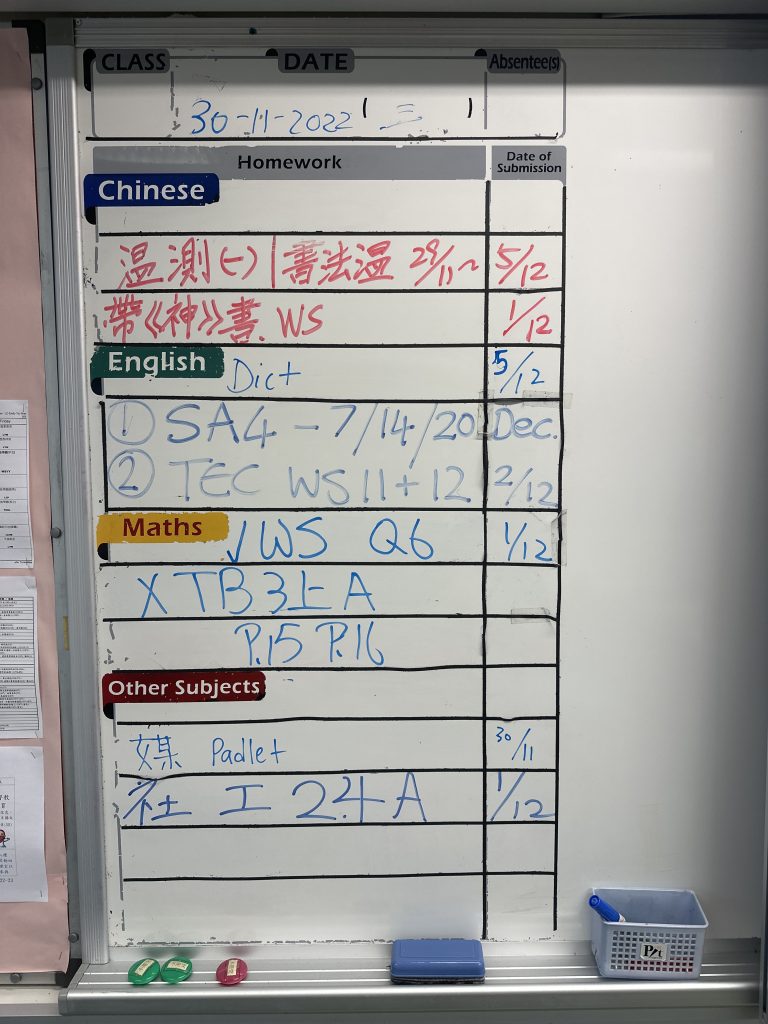 CLASS DATE Absentee(s)
30-11-2022 (三)
Homework Date of Submission
Chinese
温測(一) | 書法温 29/11~ 5/12
帶《神》書. WS 1/12
English Dict 5/12
① SA4 - 7/14/20 Dec.
② TEC WS 11+12 2/12
Maths ✓WS Q6 1/12
X TB3上A
P.15 P.16
Other Subjects
媒 Padlet 30/11
社 工 2.4A 1/12